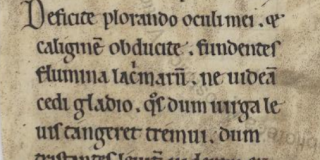 Deficite plorando oculi mei . &
caliginē obducite . fundentes
flumina lac̄marū . ne uideā
cedi gladio . q̄s dum uirga le
uis tangeret tremui . dum